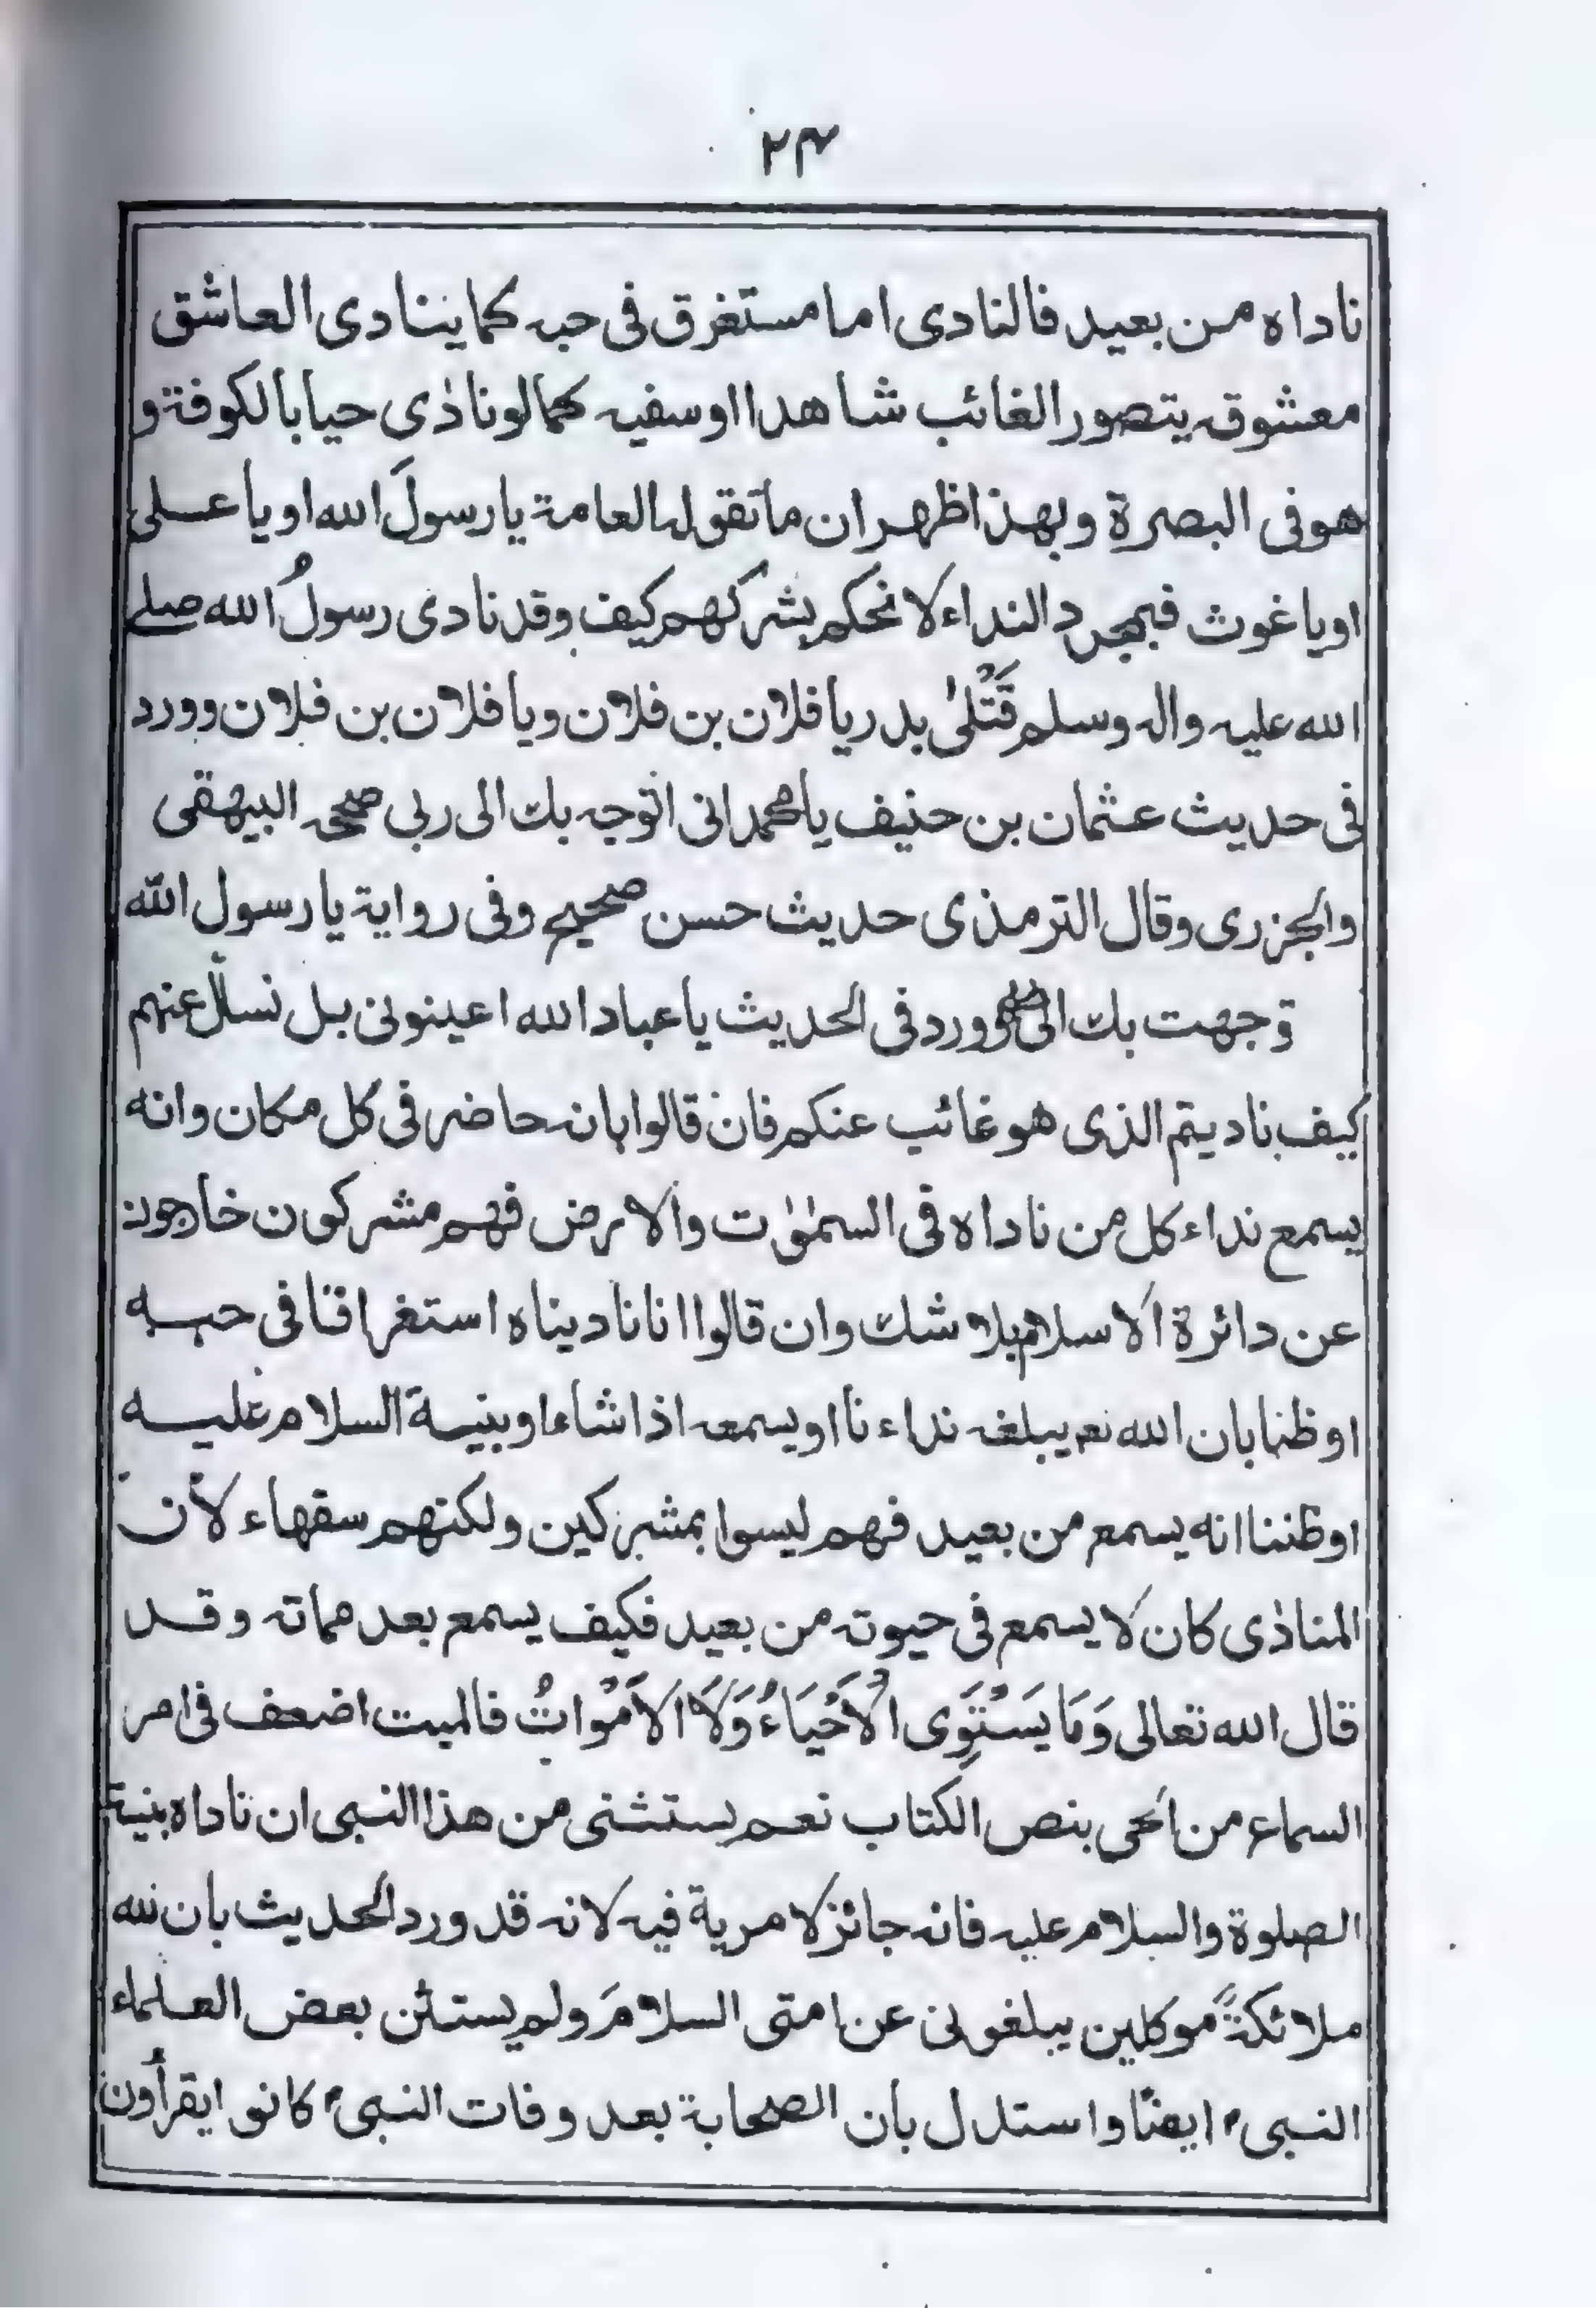 ۲۴
ناداه من بعيد فالنادى اما مستغرق فى حبه كما ينادى العاشق
معشوقه يتصور الغائب شاهدا او سفيه كما لو نادٰى حيا بالكوفة و
هو فى البصرة وبهذا ظهر ان ما تقوله العامة يا رسولَ الله او يا على
او يا غوث فبمجرد النداء لا نحكم بشركهم كيف وقد نادى رسولُ الله صلى
الله عليه واله وسلم قَتْلىٰ بدر يا فلان بن فلان ويا فلان بن فلان وورد
فى حديث عثمان بن حنيف يا محمد انى اتوجه بك الى ربى صححه البيهقى
والجزرى وقال الترمذى حديث حسن صحيح وفى رواية يا رسول الله
توجهت بك الى وورد فى الحديث يا عباد الله اعينونى بل نسأل عنهم
كيف ناديتم الذى هو غائب عنكم فان قالوا بانه حاضر فى كل مكان وانه
يسمع نداء كل من ناداه فى السمٰوٰت والارض فهم مشركون خارجون
عن دائرة الاسلام بلا شك وان قالوا انا ناديناه استغراقنا فى حبه
او ظنا بان الله نعم يبلغه نداء نا او يسمعه اذا شاء او بنية السلام عليه
او ظننا انه يسمع من بعيد فهم ليسوا بمشركين ولكنهم سفهاء لأن
المنادٰى كان لا يسمع فى حيوته من بعيد فكيف يسمع بعد مماته وقد
قال الله تعالى وَمَا يَسْتَوِى الْاَحْيَاءُ وَلَا الْاَمْوَاتُ فالميت اضعف فى امر
السماع من الحى بنص الكتاب نعم يستثنى من هذا النبى ان ناداه بنية
الصلوة والسلام عليه فانه جائز لا مرية فيه لانه قد ورد الحديث بان لله
ملائكةً موكلين يبلغونى عن امتى السلامَ ولم يستثن بعض العلماء
النبىؐ ايضًا واستدل بأن الصحابة بعد وفات النبىؐ كانوا يقرأون